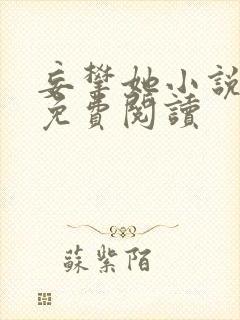 妄攀她小説
免費閱讀
蘇紫陌